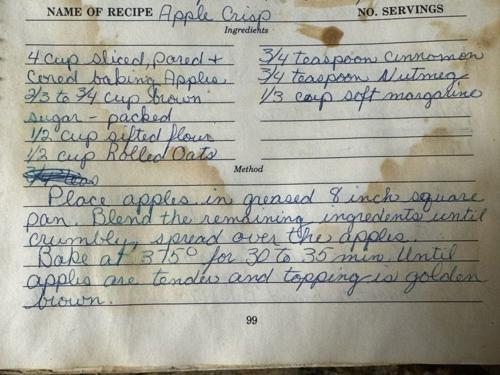 NAME OF RECIPE Apple Crisp NO. SERVINGS
Ingredients
4 cup sliced, pared +
Cored baking Apples
2/3 to 3/4 cup brown
sugar - packed
1/2 cup sifted flour
1/2 cup Rolled Oats
3/4 teaspoon Cinnamon
3/4 teaspoon Nutmeg
1/3 cup soft margarine
Method
Place apples in greased 8 inch square
pan. Blend the remaining ingredients until
crumbly, spread over the apples.
Bake at 375° for 30 to 35 min. Until
apples are tender and topping is golden
brown.
99